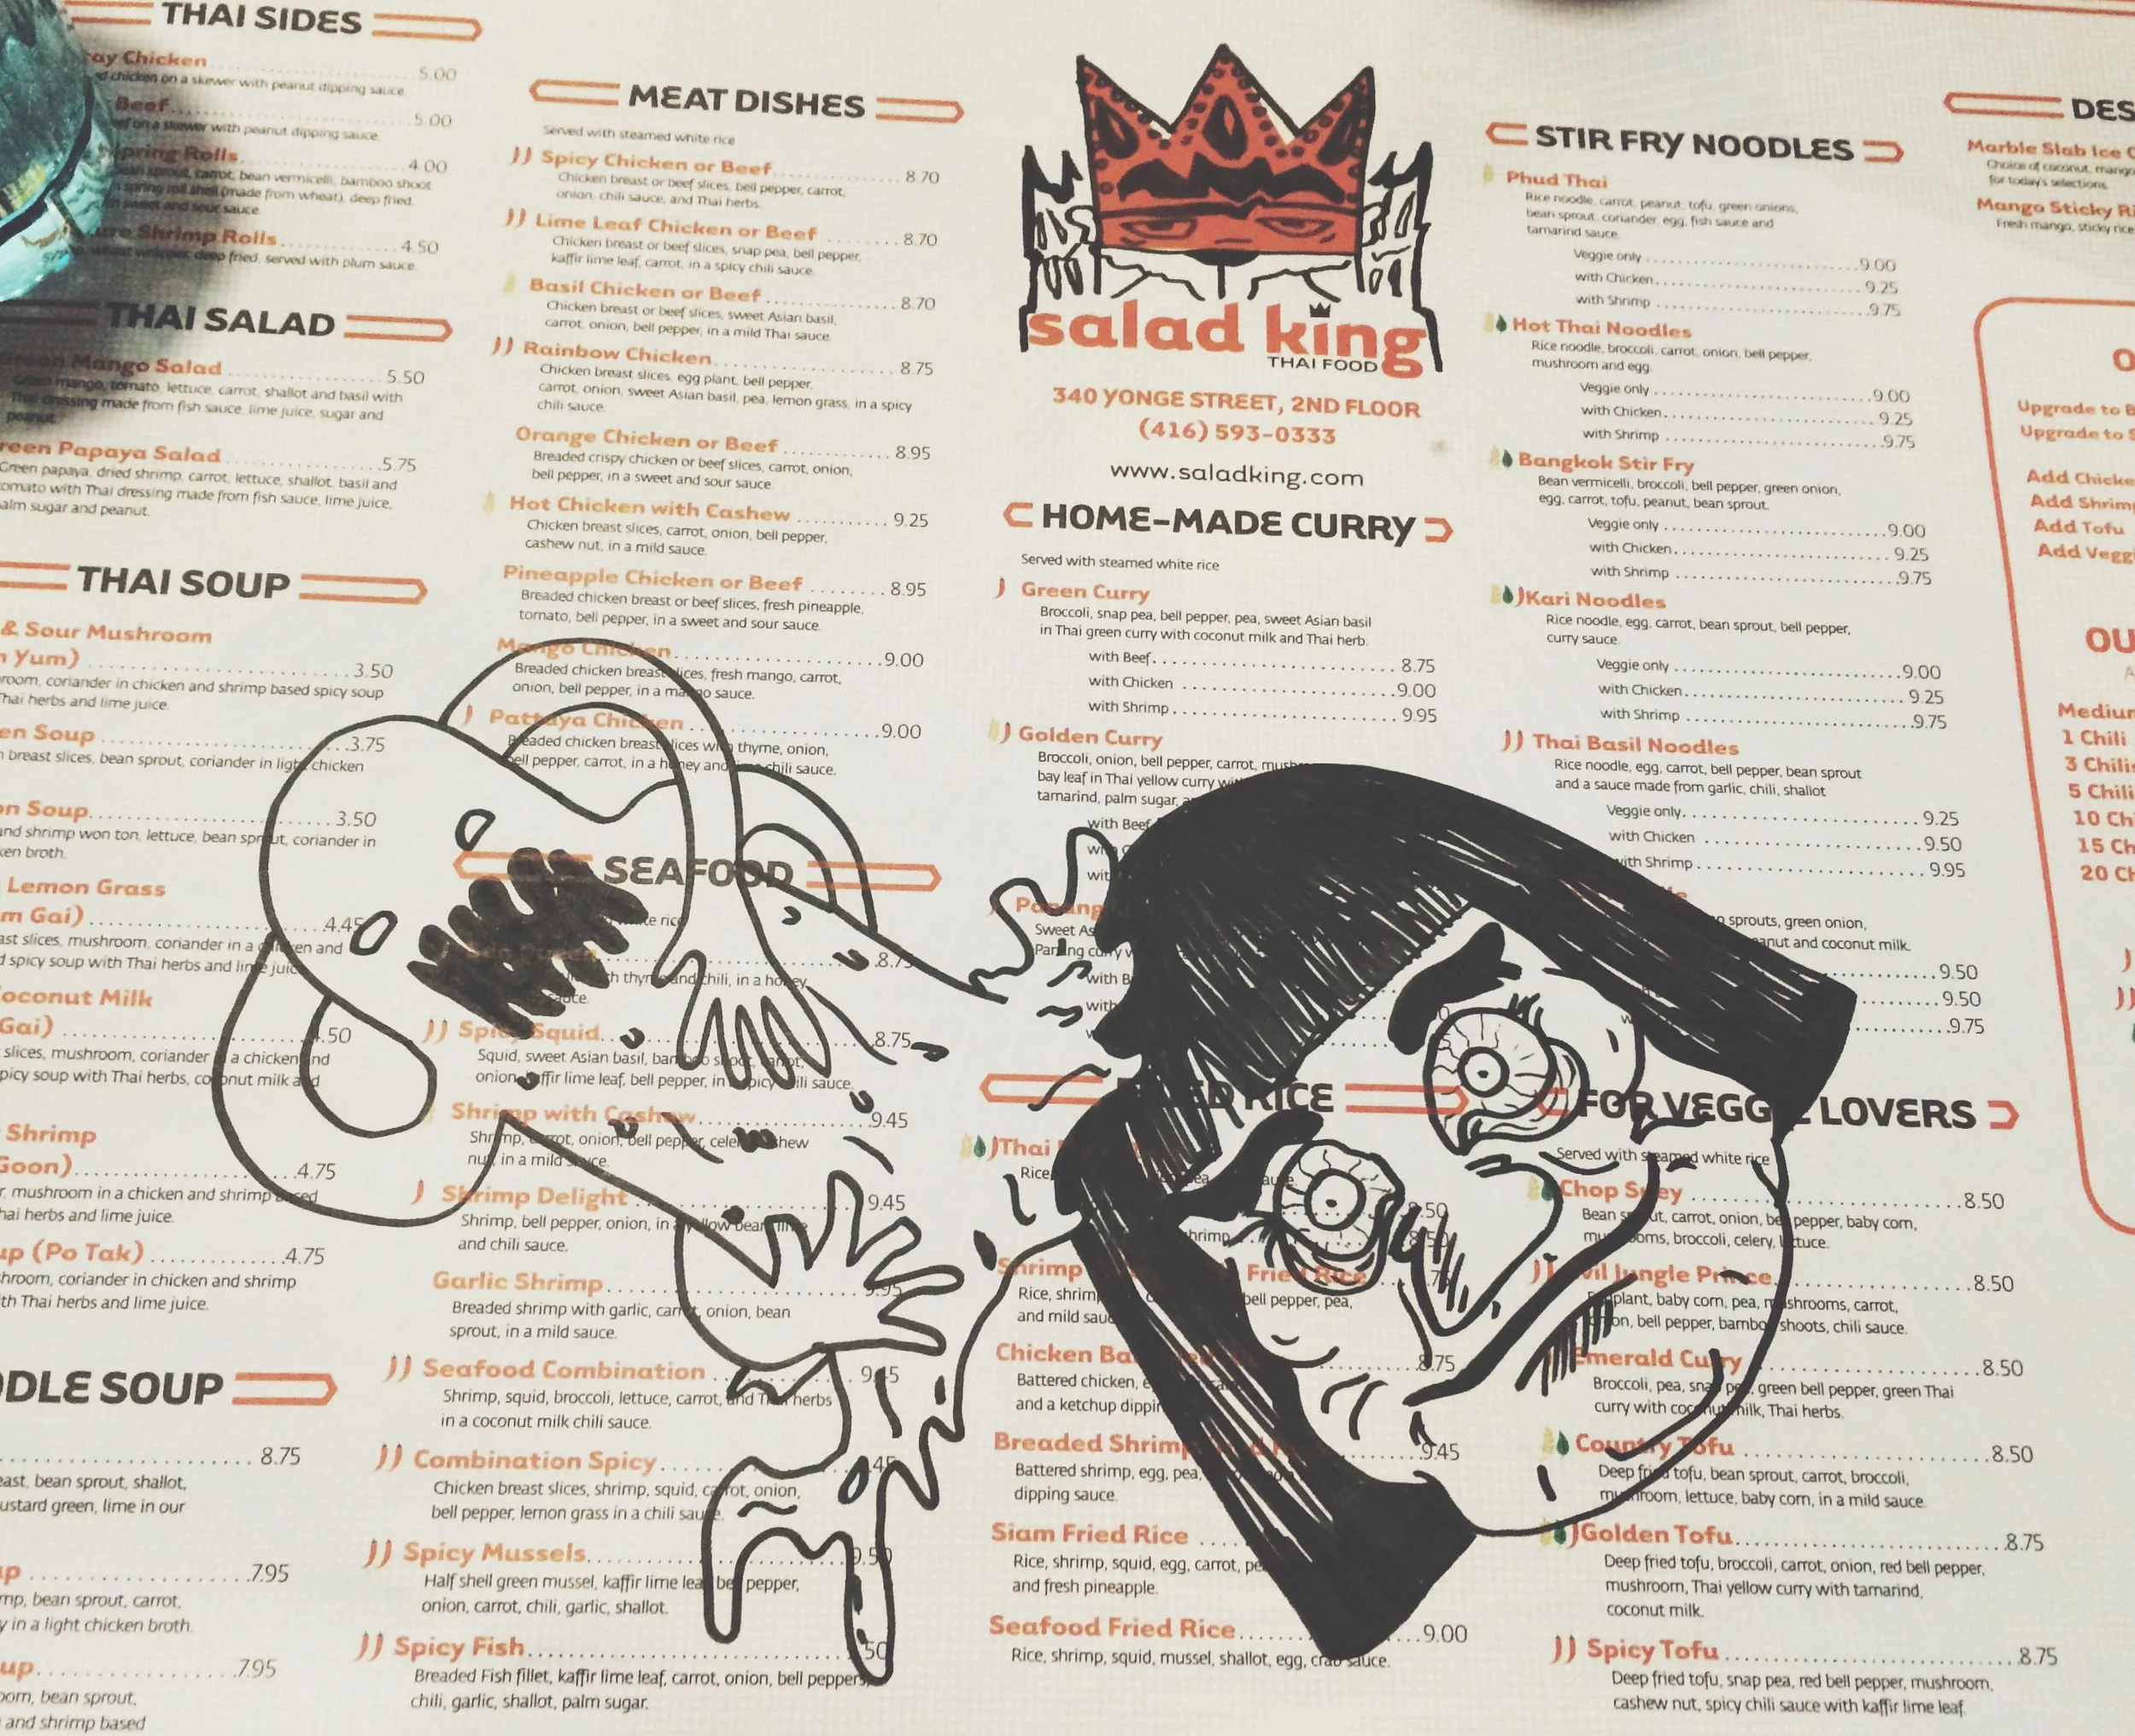 THAI SIDES
Chicken 5.00
chicken on a skewer with peanut dipping sauce
Beef 5.00
on a skewer with peanut dipping sauce.
Rolls 4.00
bean sprout, carrot, bean vermicelli, bamboo shoot
spring roll shell (made from wheat), deep fried.
sweet and sour sauce
Shrimp Rolls 4.50
deep fried, served with plum sauce.
THAI SALAD
Green Mango Salad 5.50
Green mango, tomato, lettuce, carrot, shallot and basil with
Thai dressing made from fish sauce, lime juice, sugar and
peanut.
Papaya Salad 5.75
Green papaya, dried shrimp, carrot, lettuce, shallot, basil and
tomato with Thai dressing made from fish sauce, lime juice,
palm sugar and peanut.
THAI SOUP
& Sour Mushroom
Yum) 3.50
coriander in chicken and shrimp based spicy soup
Thai herbs and lime juice.
Soup 3.75
breast slices, bean sprout, coriander in light chicken
Soup 3.50
and shrimp won ton, lettuce, bean sprout, coriander in
broth.
Lemon Grass
Gai) 4.45
slices, mushroom, coriander in a chicken and
spicy soup with Thai herbs and lime juice
Coconut Milk
Gai) 4.50
slices, mushroom, coriander a chicken and
spicy soup with Thai herbs, coconut milk and
Shrimp
Goon) 4.75
mushroom in a chicken and shrimp based
Thai herbs and lime juice.
(Po Tak) 4.75
coriander in chicken and shrimp
with Thai herbs and lime juice.
SOUP
8.75
bean sprout, shallot,
mustard green, lime in our
7.95
bean sprout, carrot,
in a light chicken broth.
7.95
bean sprout,
and shrimp based
MEAT DISHES
Served with steamed white rice
Spicy Chicken or Beef 8.70
Chicken breast or beef slices, bell pepper, carrot,
onion, chili sauce, and Thai herbs.
Lime Leaf Chicken or Beef 8.70
Chicken breast or beef slices, snap pea, bell pepper,
kaffir lime leaf, carrot, in a spicy chili sauce.
Basil Chicken or Beef 8.70
Chicken breast or beef slices, sweet Asian basil,
carrot, onion, bell pepper, in a mild Thai sauce
Rainbow Chicken 8.75
Chicken breast slices, egg plant, bell pepper,
carrot, onion, sweet Asian basil, pea, lemon grass, in a spicy
chili sauce.
Orange Chicken or Beef 8.95
Breaded crispy chicken or beef slices, carrot, onion,
bell pepper, in a sweet and sour sauce
Hot Chicken with Cashew 9.25
Chicken breast slices, carrot, onion, bell pepper,
cashew nut, in a mild sauce.
Pineapple Chicken or Beef 8.95
Breaded chicken breast or beef slices, fresh pineapple,
tomato, bell pepper, in a sweet and sour sauce.
Mango Chicken 9.00
Breaded chicken breast slices, fresh mango, carrot,
onion, bell pepper, in a mango sauce.
Pattaya Chicken 9.00
Breaded chicken breast slices with thyme, onion,
bell pepper, carrot, in a honey and chili sauce.
SEAFOOD
rice
8.75
thyme and chili, in a honey
sauce.
Spicy Squid 8.75
Squid, sweet Asian basil, bamboo shoot, carrot,
onion, kaffir lime leaf, bell pepper, in spicy chili sauce.
Shrimp with Cashew 9.45
Shrimp, carrot, onion, bell pepper, celery, cashew
nut, in a mild sauce.
Shrimp Delight 9.45
Shrimp, bell pepper, onion, in a yellow bean
and chili sauce.
Garlic Shrimp 9.95
Breaded shrimp with garlic, carrot, onion, bean
sprout, in a mild sauce.
Seafood Combination 9.45
Shrimp, squid, broccoli, lettuce, carrot, and Thai herbs
in a coconut milk chili sauce.
Combination Spicy .45
Chicken breast slices, shrimp, squid, carrot, onion,
bell pepper, lemon grass in a chili sauce.
Spicy Mussels 9.50
Half shell green mussel, kaffir lime leaf, bell pepper,
onion, carrot, chili, garlic, shallot.
Spicy Fish 50
Breaded Fish fillet, kaffir lime leaf, carrot, onion, bell pepper,
chili, garlic, shallot, palm sugar.
salad king
THAI FOOD
340 YONGE STREET, 2ND FLOOR
(416) 593-0333
www.saladking.com
HOME-MADE CURRY
Served with steamed white rice
Green Curry
Broccoli, snap pea, bell pepper, pea, sweet Asian basil
in Thai green curry with coconut milk and Thai herb.
with Beef 8.75
with Chicken 9.00
with Shrimp 9.95
Golden Curry
Broccoli, onion, bell pepper, carrot,
bay leaf in Thai yellow curry
tamarind, palm sugar,
with Beef
Panang
Sweet
Panang curry
with
with
FRIED RICE
Thai
Rice,
Shrimp Fried Rice
Rice, shrimp bell pepper, pea,
and mild sauce
Chicken 8.75
Battered chicken,
and a ketchup dipping
Breaded Shrimp 9.45
Battered shrimp, egg, pea,
dipping sauce.
Siam Fried Rice
Rice, shrimp, squid, egg, carrot,
and fresh pineapple.
Seafood Fried Rice 9.00
Rice, shrimp, squid, mussel, shallot, egg, crab sauce.
STIR FRY NOODLES
Phud Thai
Rice noodle, carrot, peanut, tofu, green onions,
bean sprout, coriander, egg, fish sauce and
tamarind sauce.
Veggie only 9.00
with Chicken 9.25
with Shrimp 9.75
Hot Thai Noodles
Rice noodle, broccoli, carrot, onion, bell pepper,
mushroom and egg
Veggie only 9.00
with Chicken 9.25
with Shrimp 9.75
Bangkok Stir Fry
Bean vermicelli, broccoli, bell pepper, green onion,
egg, carrot, tofu, peanut, bean sprout.
Veggie only 9.00
with Chicken 9.25
with Shrimp 9.75
Kari Noodles
Rice noodle, egg, carrot, bean sprout, bell pepper,
curry sauce.
Veggie only 9.00
with Chicken 9.25
with Shrimp 9.75
Thai Basil Noodles
Rice noodle, egg, carrot, bell pepper, bean sprout
and a sauce made from garlic, chili, shallot
Veggie only 9.25
with Chicken 9.50
with Shrimp 9.95
sprouts, green onion,
and coconut milk.
9.50
9.50
9.75
FOR VEGGIE LOVERS
Served with steamed white rice
Chop Suey 8.50
Bean sprout, carrot, onion, bell pepper, baby corn,
mushrooms, broccoli, celery, lettuce.
Evil Jungle Prince 8.50
Eggplant, baby corn, pea, mushrooms, carrot,
onion, bell pepper, bamboo shoots, chili sauce.
Emerald Curry 8.50
Broccoli, pea, snap pea, green bell pepper, green Thai
curry with coconut milk, Thai herbs.
Country Tofu 8.50
Deep fried tofu, bean sprout, carrot, broccoli,
mushroom, lettuce, baby corn, in a mild sauce
Golden Tofu 8.75
Deep fried tofu, broccoli, carrot, onion, red bell pepper,
mushroom, Thai yellow curry with tamarind,
coconut milk.
Spicy Tofu 8.75
Deep fried tofu, snap pea, red bell pepper, mushroom,
cashew nut, spicy chili sauce with kaffir lime leaf.
DES
Marble Slab Ice
Choice of coconut, mango
for today's selections.
Mango Sticky
Fresh mango, sticky rice
Upgrade to
Upgrade to
Add
Add
Add Tofu
Add
OU
Medium
1 Chili
3
5
10
15
20